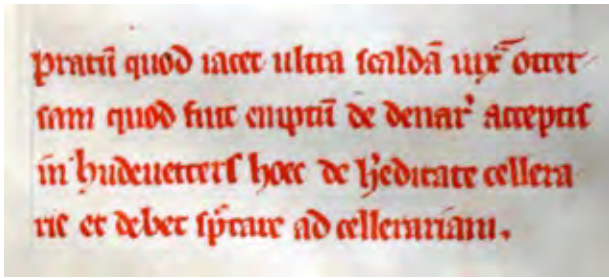 pratū quod iacet ultra scaldā iux̄ otter
sam quod fuit emptū de denar' acceptis
in hudeuetters hoec de h'editate cellera
rie et debet sp̄tare ad cellerariam.